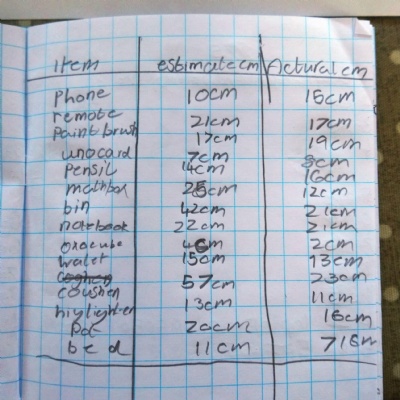 Item estimate cm Actural cm
Phone 10cm 15cm
remote 21cm 17cm
Paint brush 17cm 19cm
unocard 7cm cm
Pensil 14cm 16cm
mathbox 25cm 12cm
bin 42cm 21cm
notebook 22cm 21cm
onocube 6cm 2cm
walet 15cm 13cm
coushen 57cm 23cm
hiylighter 13cm 11cm
Pot 20cm 16cm
bed 11cm 716m